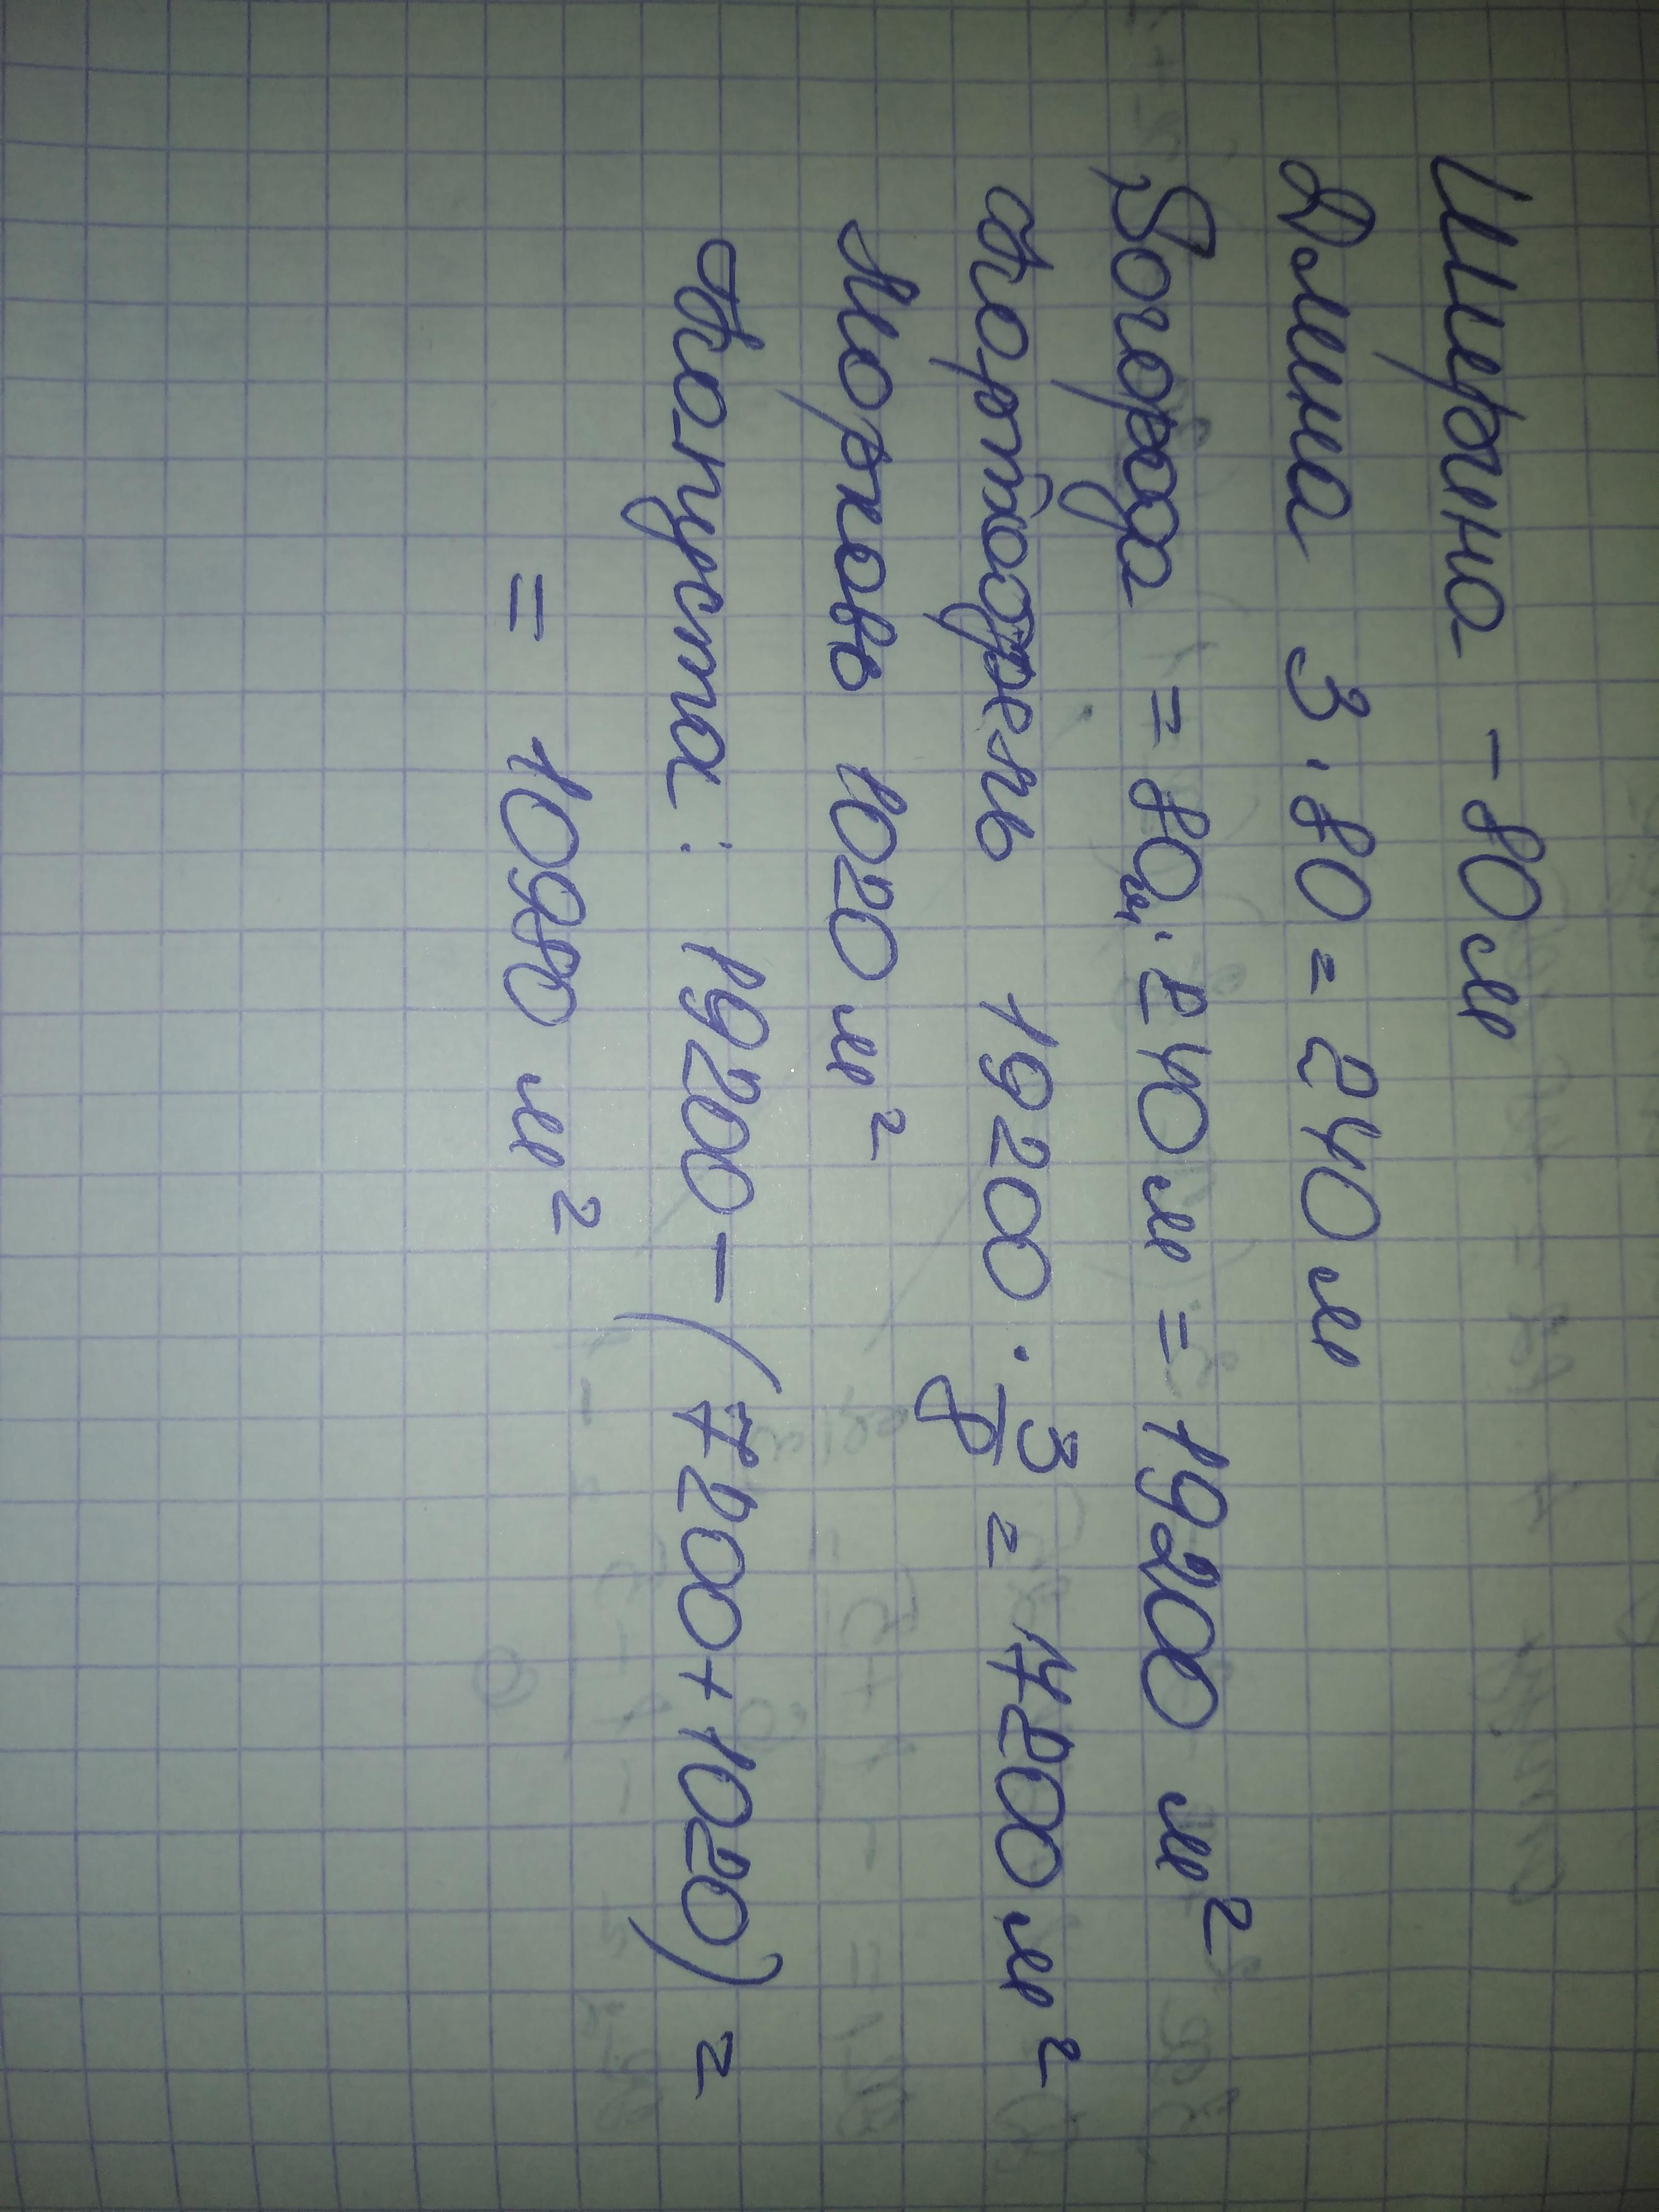 Ширина - 80 м
Длина 3 · 80 = 240 м
Sогорода = 80 м · 240 м = 19200 м²
Картофель 19200 · 3/8 = 7200 м²
Морковь 1020 м²
Капуста: 19200 - (7200 + 1020) =
= 10980 м²